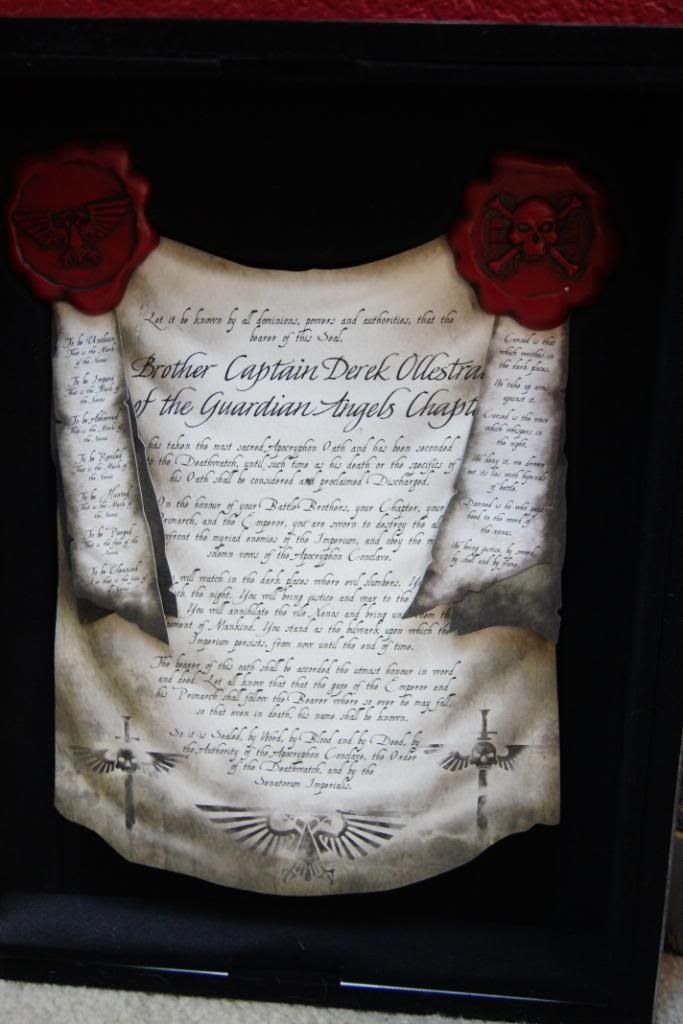 Let it be known by all dominions, powers and authorities, that the
bearer of this Seal.
Brother Captain Derek Ollestra
of the Guardian Angels Chapt
has taken the most sacred Apocryphon Oath and has been seconded
to the Deathwatch, until such time as his death or the specifics of
his Oath shall be considered and proclaimed Discharged.
On the honour of your Battle Brothers, your Chapter, your
Primarch, and the Emperor, you are sworn to destroy the al
nfront the myriad enemies of the Imperium, and obey the m
solemn vows of the Apocryphon Conclave.
will watch in the dark places where evil slumbers. Y
ck the night. You will bring justice and war to the
You will annihilate the vile Xenos and bring un them th
pement of Mankind. You stand as the bulwark upon which the
Imperium persists, from now until the end of time.
The bearer of this oath shall be accorded the utmost honour in word
and deed. Let all know that that the gaze of the Emperor and
his Primarch shall follow the Bearer where so ever he may fall,
so that even in death, his name shall be known.
So it is Sealed, by Word, by Blood and by Deed, by
the Authority of the Apocryphon Conclave, the Order
of the Deathwatch, and by the
Senatorum Imperialis.
To be Unclean
That is the Mark of
the Xenos
To be Impure
That is the Mark of
the Xenos
To be Abhorred
That is the Mark of
the Xenos
To be Reviled
That is the Mark of
the Xenos
To be Hunted
That is the Mark of
the Xenos
To be Purged
That is the fate of the
Xenos
To be Cleansed
that is the fate of
Xenos
Cursed is that
which writhes in
the dark places.
We take up arms
against it.
Cursed is the voice
which whispers in
the night.
We deny it, we drown
out its lies with hymnals
of battle.
Damned is he who pays
heed to the word of
the xenos.
We bring justice, by sword,
by shell and by flame.